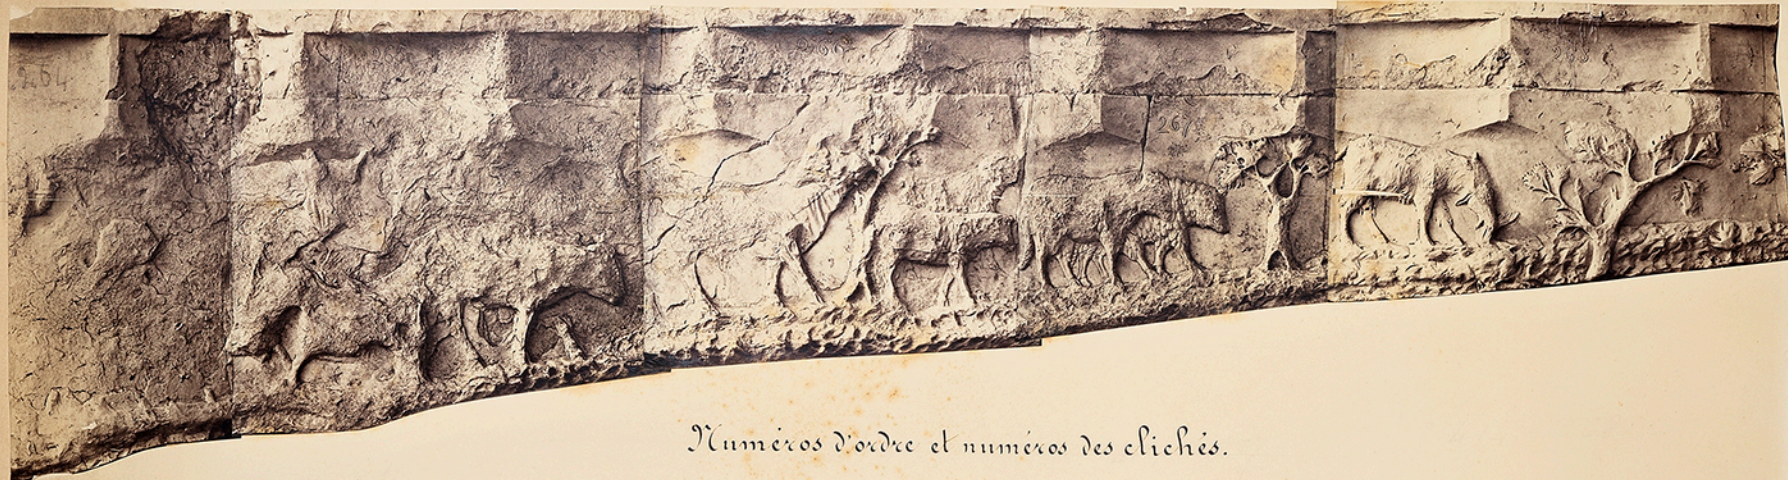 264
267
Numéros d'ordre et numéros des clichés.